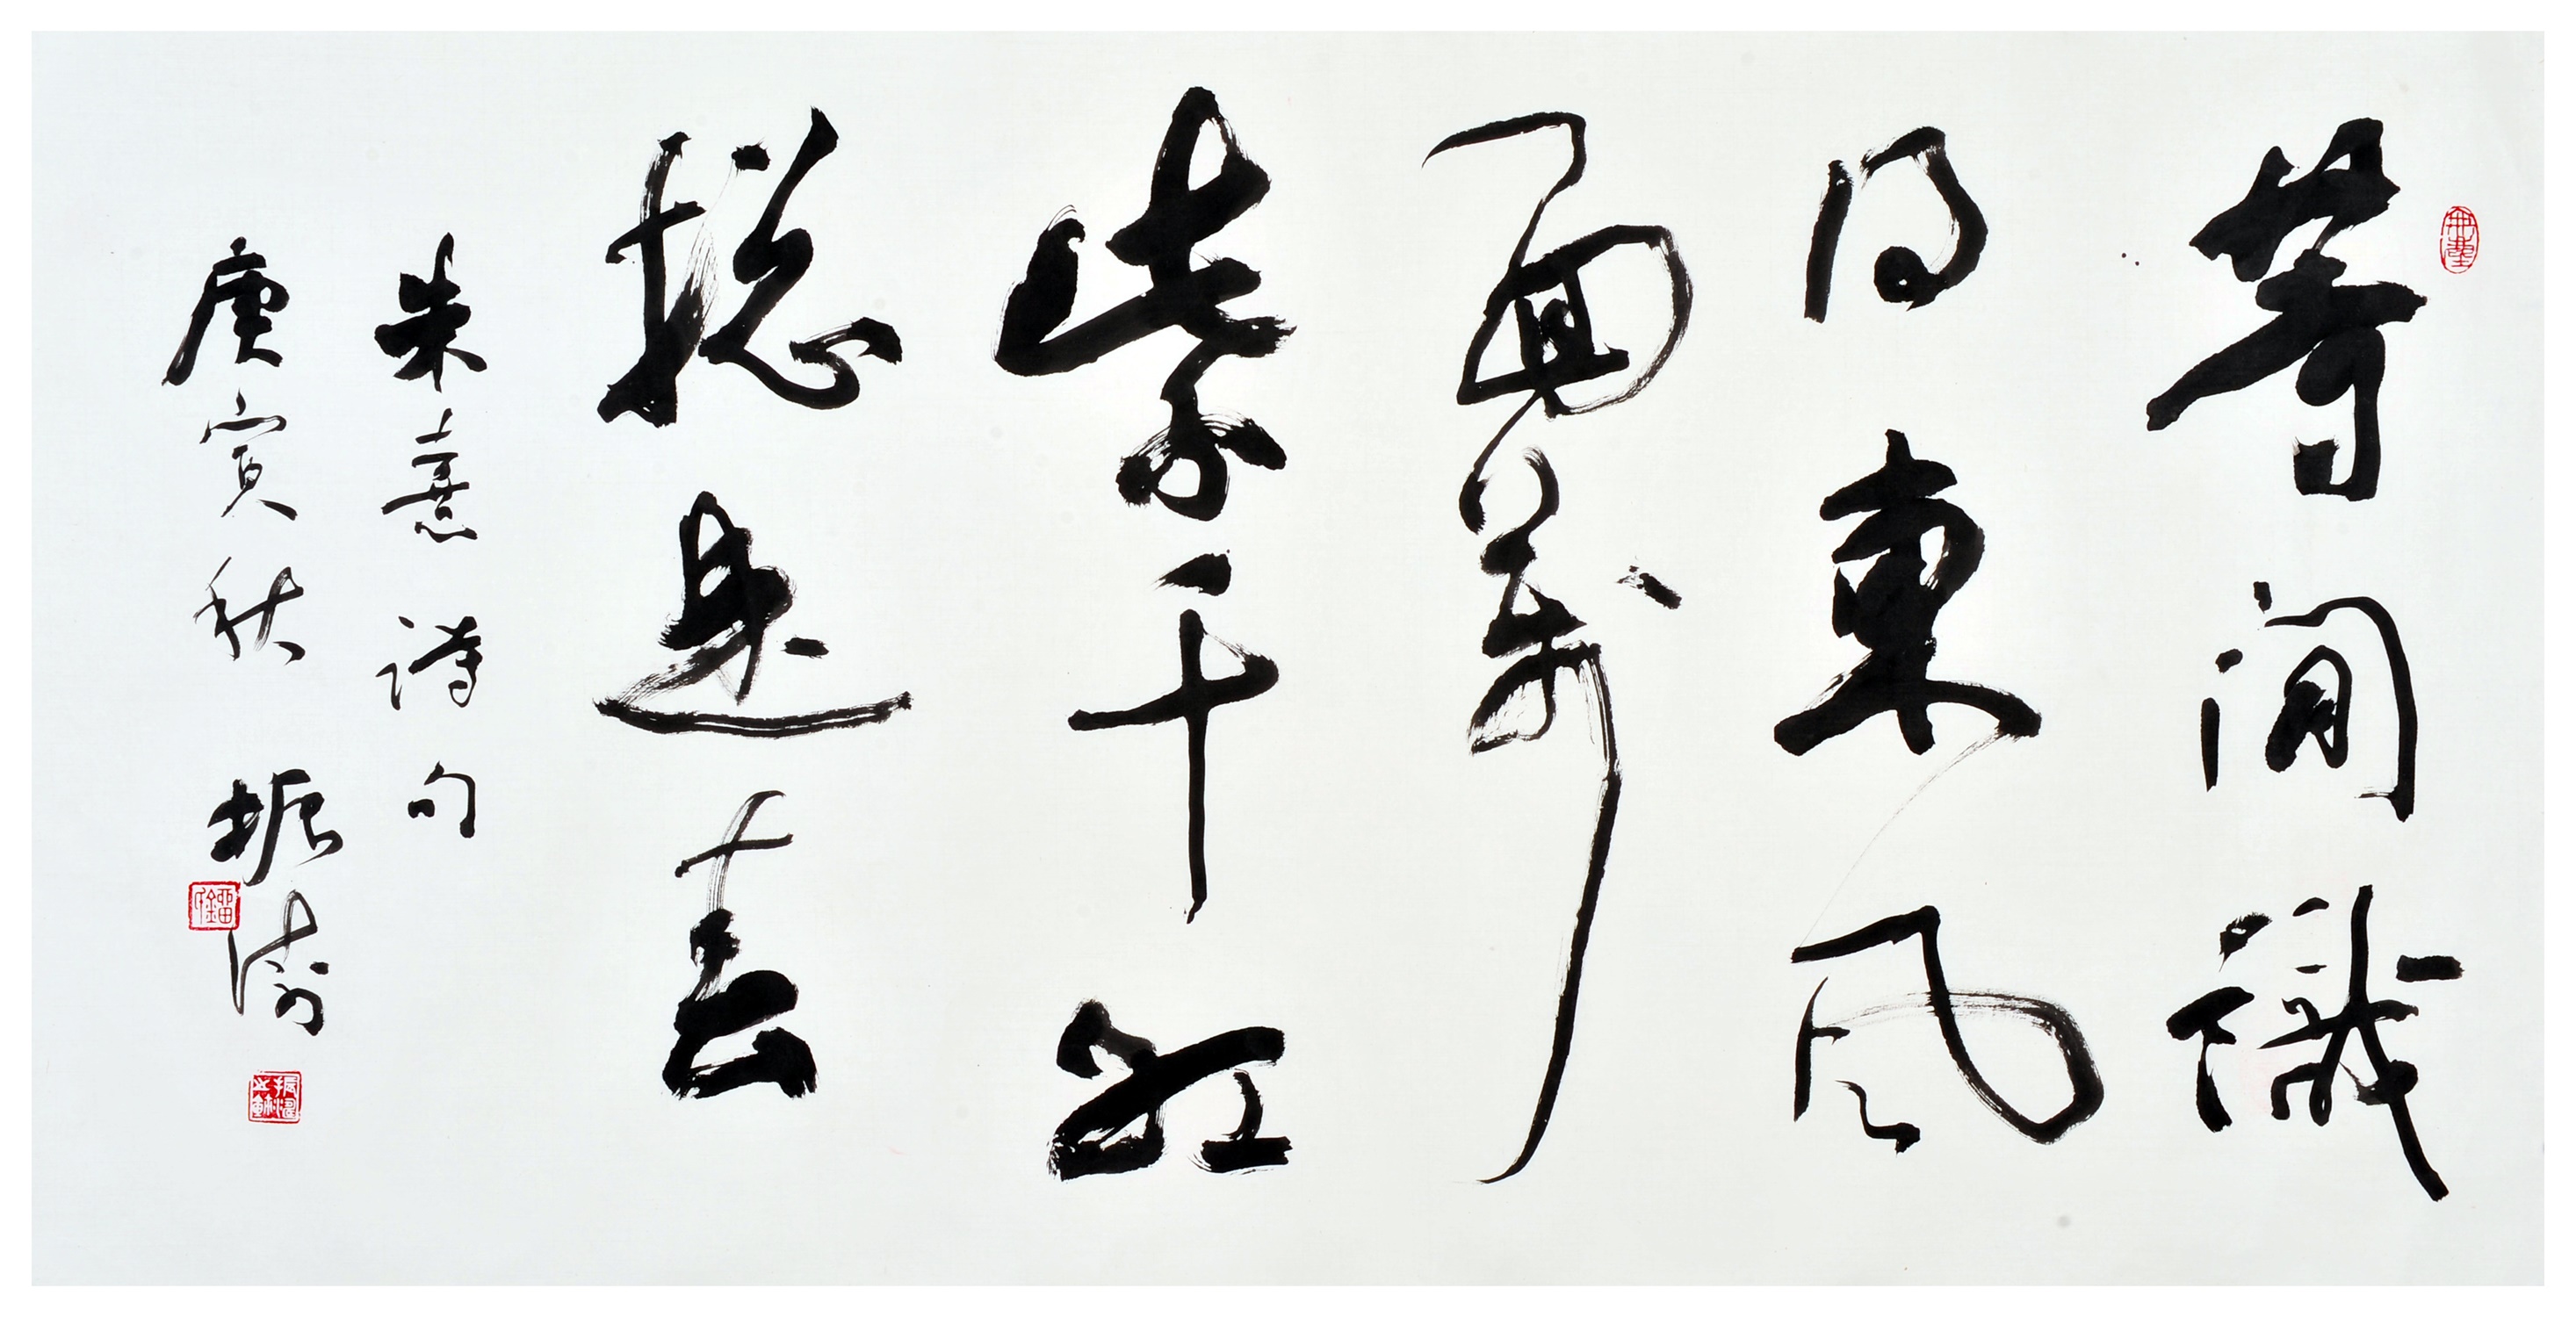 等閒識
得東風
面萬
紫千紅
總是春
朱熹詩句
庚寅秋 振濤